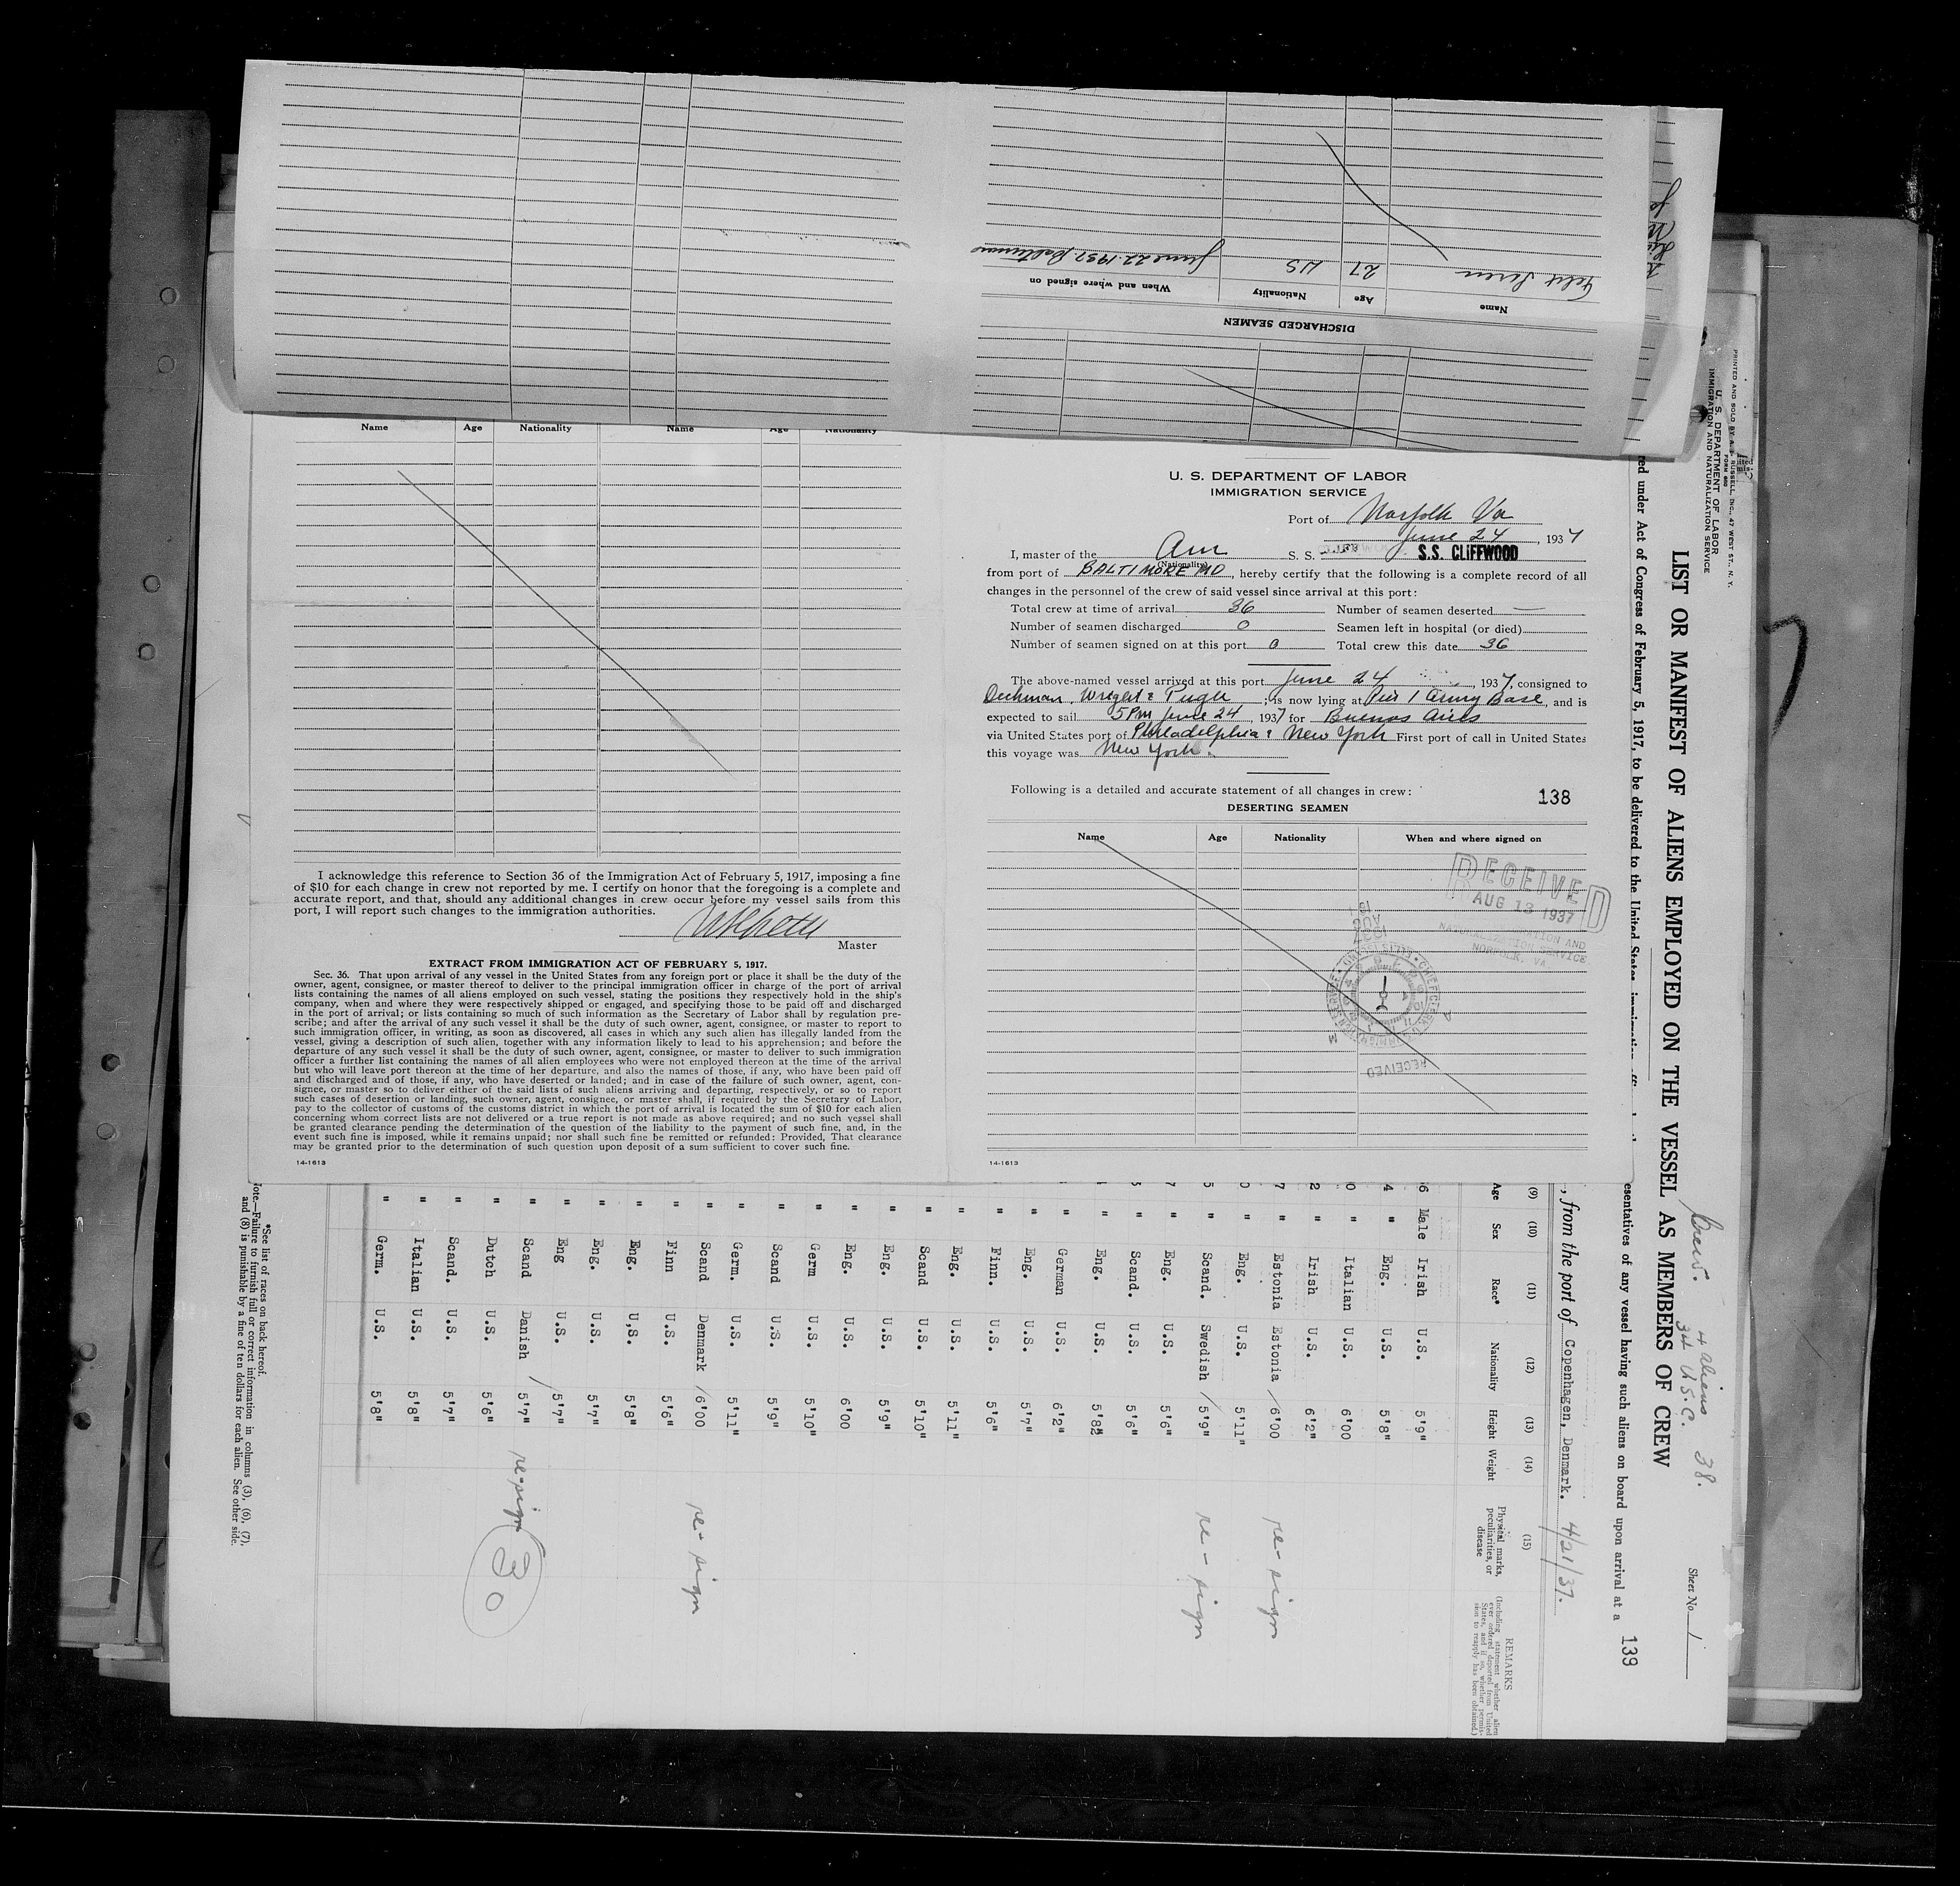 Name Age Nationality When and where signed on
27 US June 22-1937 Baltimore
DISCHARGED SEAMEN
Name Age Nationality Name Age Nationality
I acknowledge this reference to Section 36 of the Immigration Act of February 5, 1917, imposing a fine
of $10 for each change in crew not reported by me. I certify on honor that the foregoing is a complete and
accurate report, and that, should any additional changes in crew occur before my vessel sails from this
port, I will report such changes to the immigration authorities.
Master
EXTRACT FROM IMMIGRATION ACT OF FEBRUARY 5, 1917.
Sec. 36. That upon arrival of any vessel in the United States from any foreign port or place it shall be the duty of the
owner, agent, consignee, or master thereof to deliver to the principal immigration officer in charge of the port of arrival
lists containing the names of all aliens employed on such vessel, stating the positions they respectively hold in the ship's
company, when and where they were respectively shipped or engaged, and specifying those to be paid off and discharged
in the port of arrival; or lists containing so much of such information as the Secretary of Labor shall by regulation pre-
scribe; and after the arrival of any such vessel it shall be the duty of such owner, agent, consignee, or master to report to
such immigration officer, in writing, as soon as discovered, all cases in which any such alien has illegally landed from the
vessel, giving a description of such alien, together with any information likely to lead to his apprehension; and before the
departure of any such vessel it shall be the duty of such owner, agent, consignee, or master to deliver to such immigration
officer a further list containing the names of all alien employees who were not employed thereon at the time of the arrival
but who will leave port thereon at the time of her departure, and also the names of those, if any, who have been paid off
and discharged and of those, if any, who have deserted or landed; and in case of the failure of such owner, agent, con-
signee, or master so to deliver either of the said lists of such aliens arriving and departing, respectively, or so to report
such cases of desertion or landing, such owner, agent, consignee, or master shall, if required by the Secretary of Labor,
pay to the collector of customs of the customs district in which the port of arrival is located the sum of $10 for each alien
concerning whom correct lists are not delivered or a true report is not made as above required; and no such vessel shall
be granted clearance pending the determination of the question of the liability to the payment of such fine, and, in the
event such fine is imposed, while it remains unpaid; nor shall such fine be remitted or refunded: Provided, That clearance
may be granted prior to the determination of such question upon deposit of a sum sufficient to cover such fine.
14-1613
U. S. DEPARTMENT OF LABOR
IMMIGRATION SERVICE
Port of Norfolk Va
June 24, 1937
I, master of the Am S. S. S.S. CLIFFWOOD
(Nationality)
from port of BALTIMORE MD, hereby certify that the following is a complete record of all
changes in the personnel of the crew of said vessel since arrival at this port:
Total crew at time of arrival 36 Number of seamen deserted —
Number of seamen discharged 0 Seamen left in hospital (or died)
Number of seamen signed on at this port 0 Total crew this date 36
The above-named vessel arrived at this port June 24, 1937, consigned to
Dechman, Wright & Pugh; is now lying at Pier 1 Army Base, and is
expected to sail 5 PM June 24, 1937 for Buenos Aires
via United States port of Philadelphia & New York First port of call in United States
this voyage was New York.
Following is a detailed and accurate statement of all changes in crew:
138
DESERTING SEAMEN
Name Age Nationality When and where signed on
RECEIVED
AUG 13 1937
NATURALIZATION SERVICE
NORFOLK, VA
RECEIVED
14-1613
PRINTED AND SOLD BY RUSSELL, INC., 47 WEST ST., N. Y.
FORM 680
U. S. DEPARTMENT OF LABOR
IMMIGRATION AND NATURALIZATION SERVICE
LIST OR MANIFEST OF ALIENS EMPLOYED ON THE VESSEL AS MEMBERS OF CREW
Crew. 38.
4 aliens
34 U.S.C.
Sheet No 1
red under Act of Congress of February 5, 1917, to be delivered to the United States
esentatives of any vessel having such aliens on board upon arrival at a
139
, from the port of Copenhagen, Denmark. 4/21/37.
(9) (10) (11) (12) (13) (14) (15)
Age Sex Race* Nationality Height Weight Physical marks, peculiarities, or disease
REMARKS
(Including statement whether alien
ever ordered deported from United
States, and if so, whether permis-
sion to reapply has been obtained.)
6 Male Irish U.S. 5'9"
4 " Eng. U.S. 5'8"
0 " Italian U.S. 6'00
2 " Irish U.S. 6'2"
7 " Estonia Estonia / 6'00 re-sign
0 " Eng. U.S. 5'11"
5 " Scand. Swedish / 5'9" re-sign
7 " Eng. U.S. 5'6"
" Scand. U.S. 5'6"
" Eng. U.S. 5'8"
" German U.S. 6'2"
" Eng. U.S. 5'7"
" Finn. U.S. 5'6"
" Eng. U.S. 5'11"
" Scand U.S. 5'10"
" Eng. U.S. 5'9"
" Eng. U.S. 6'00
" Germ U.S. 5'10"
" Scand U.S. 5'9"
" Germ. U.S. 5'11"
" Scand Denmark / 6'00 re-sign
" Finn U.S. 5'6"
" Eng. U.S. 5'8"
" Eng. U.S. 5'7"
" Eng U.S. 5'7"
" Scand Danish / 5'7" re-sign
" Dutch U.S. 5'6"
30
" Scand. U.S. 5'7"
" Italian U.S. 5'8"
" Germ. U.S. 5'8"
*See list of races on back hereof.
ote.—Failure to furnish full or correct information in columns (3), (6), (7),
and (8) is punishable by a fine of ten dollars for each alien. See other side.